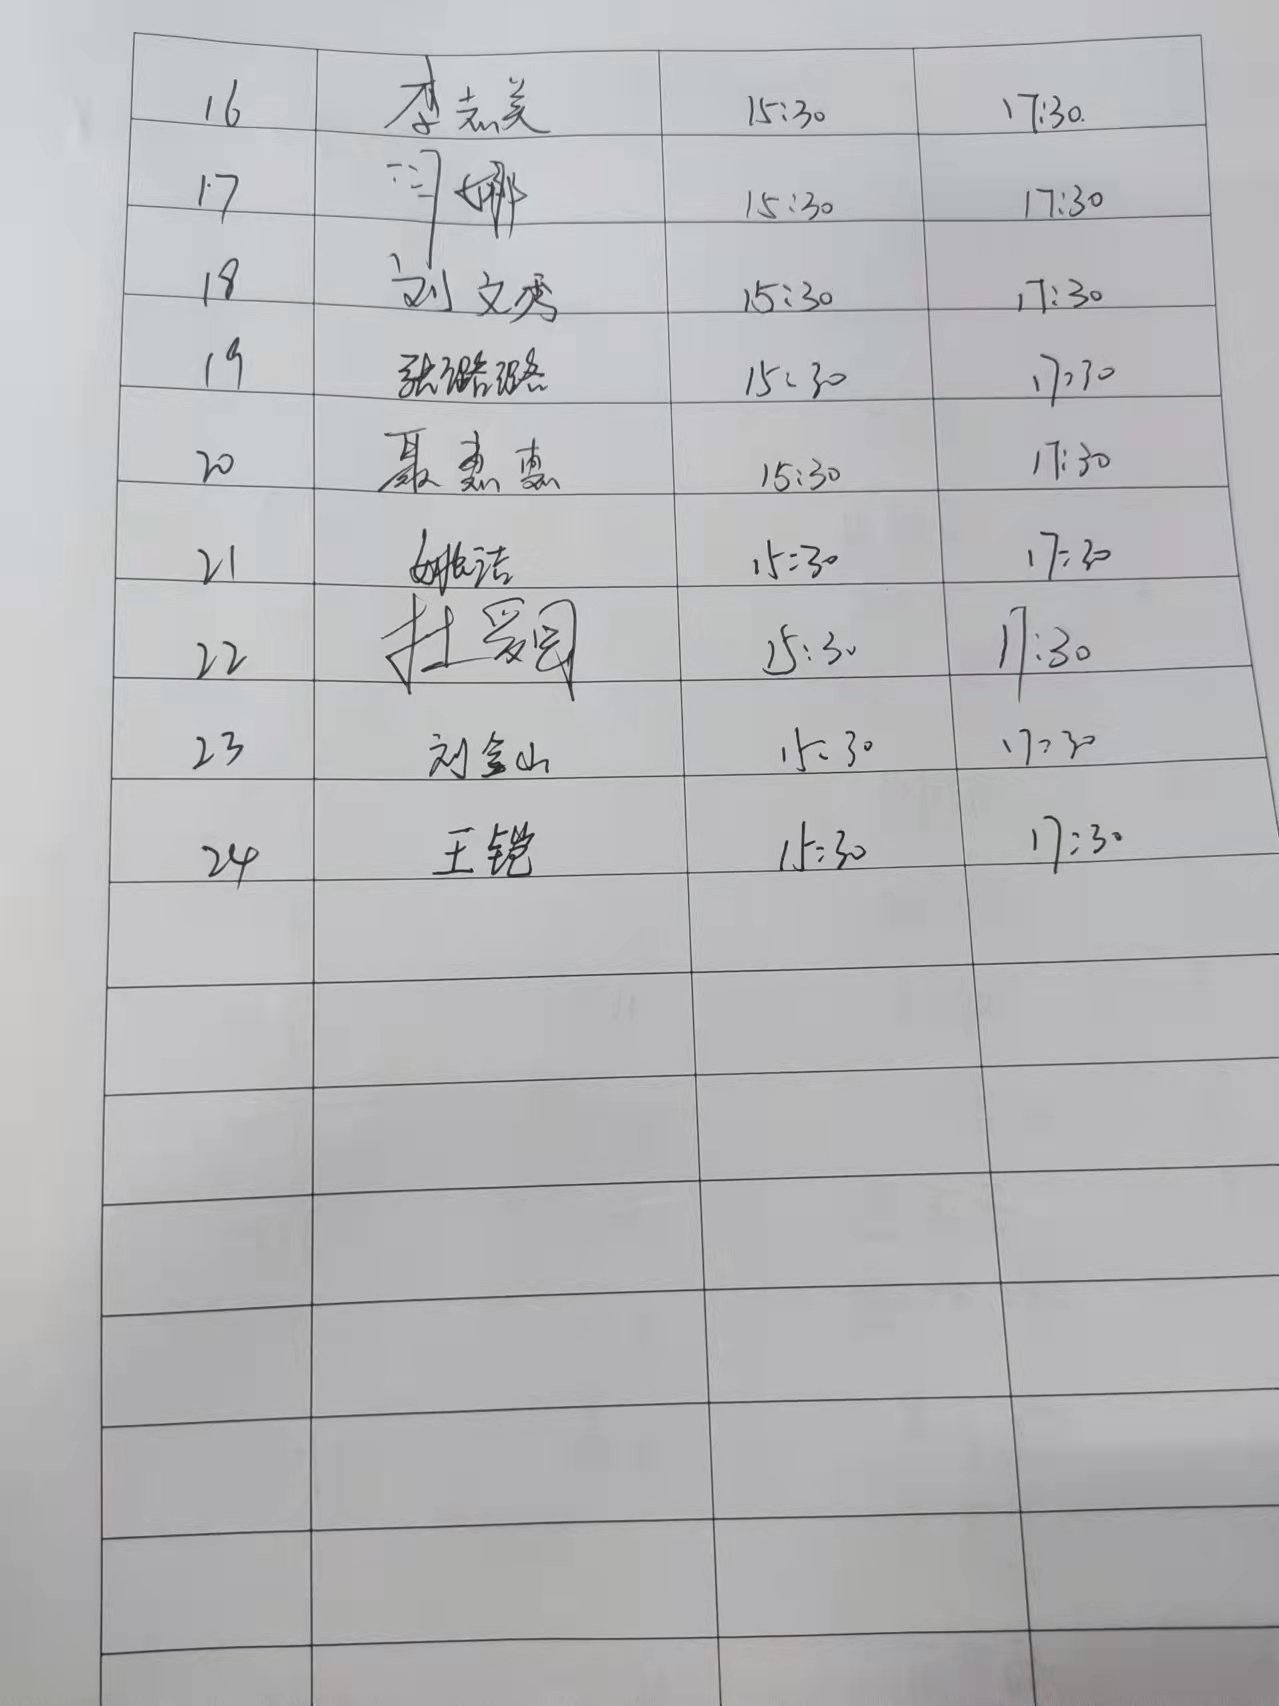 16 李志美 15:30 17:30.
17 闫娜 15:30 17:30
18 刘文秀 15:30 17:30
19 张璐璐 15:30 17:30
20 聂惠惠 15:30 17:30
21 姚洁 15:30 17:30
22 杜爱 15:30 17:30
23 刘金山 15:30 17:30
24 王铠 15:30 17:30